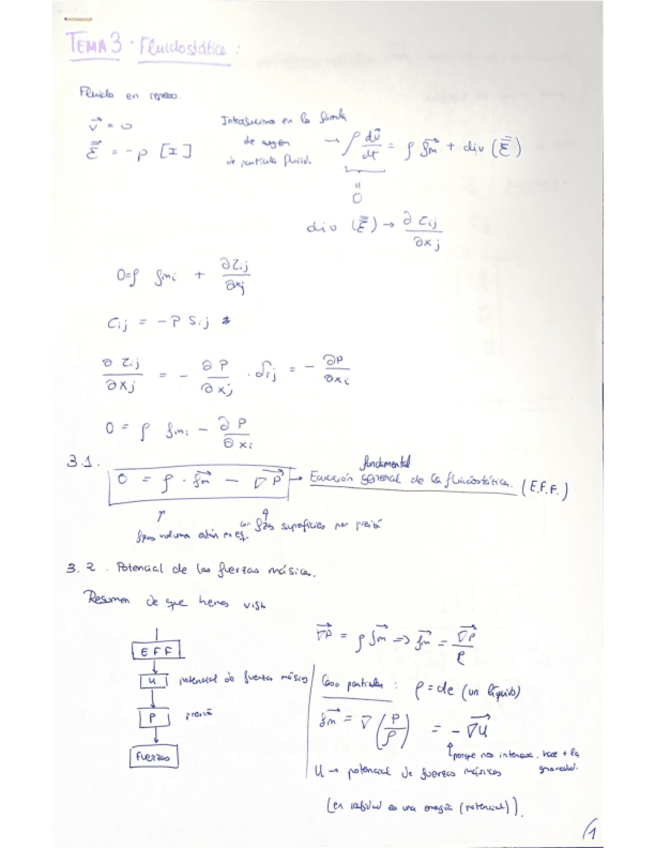 TEMA 3. Fluidostática:
Fluido en reposo.
v⃗ = 0
Introducimos en la
de
de partícula fluida.
→ ρ dv⃗/dt = ρ f⃗m + div (Ē)
Ē = -p [I]
"
0
div (Ē) → ∂τij/∂xj
0=ρ fmi + ∂τij/∂xj
τij = -P δij
∂τij/∂xj = - ∂P/∂xj · δij = - ∂P/∂xi
0 = ρ fmi - ∂P/∂xi
3.1. 0 = ρ · f⃗m - ∇P → Ecuación general de la fluidostática. (E.F.F.)
fundamental
fzas volumen están en eq. con fzas superficies por presión
3.2. Potencial de las fuerzas másicas.
Resumen de que hemos visto
EFF
U potencial de fuerzas másicas
P presión
Fuerzas
∇P = ρ f⃗m => f⃗m = ∇P/ρ
Caso particular: ρ = cte (un líquido)
f⃗m = ∇(P/ρ) = - ∇U
porque nos interesa
gravedad.
U → potencial de fuerzas másicas
(en realidad es una energía (potencial)).
1